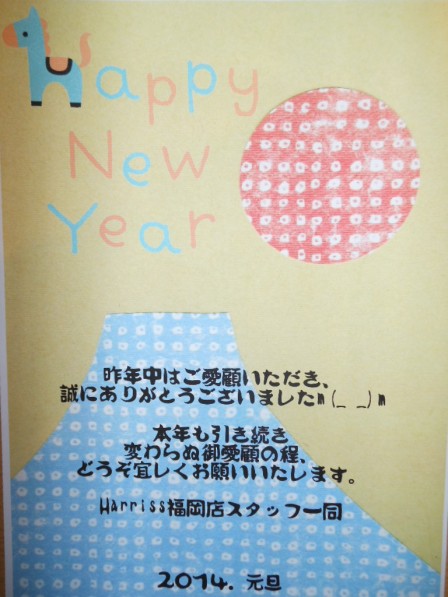 Happy
New
Year
昨年中はご愛顧いただき、
誠にありがとうございましたm(_ _)m
本年も引き続き
変わらぬ御愛顧の程、
どうぞ宜しくお願いいたします。
Harriss福岡店スタッフ一同
2014. 元旦